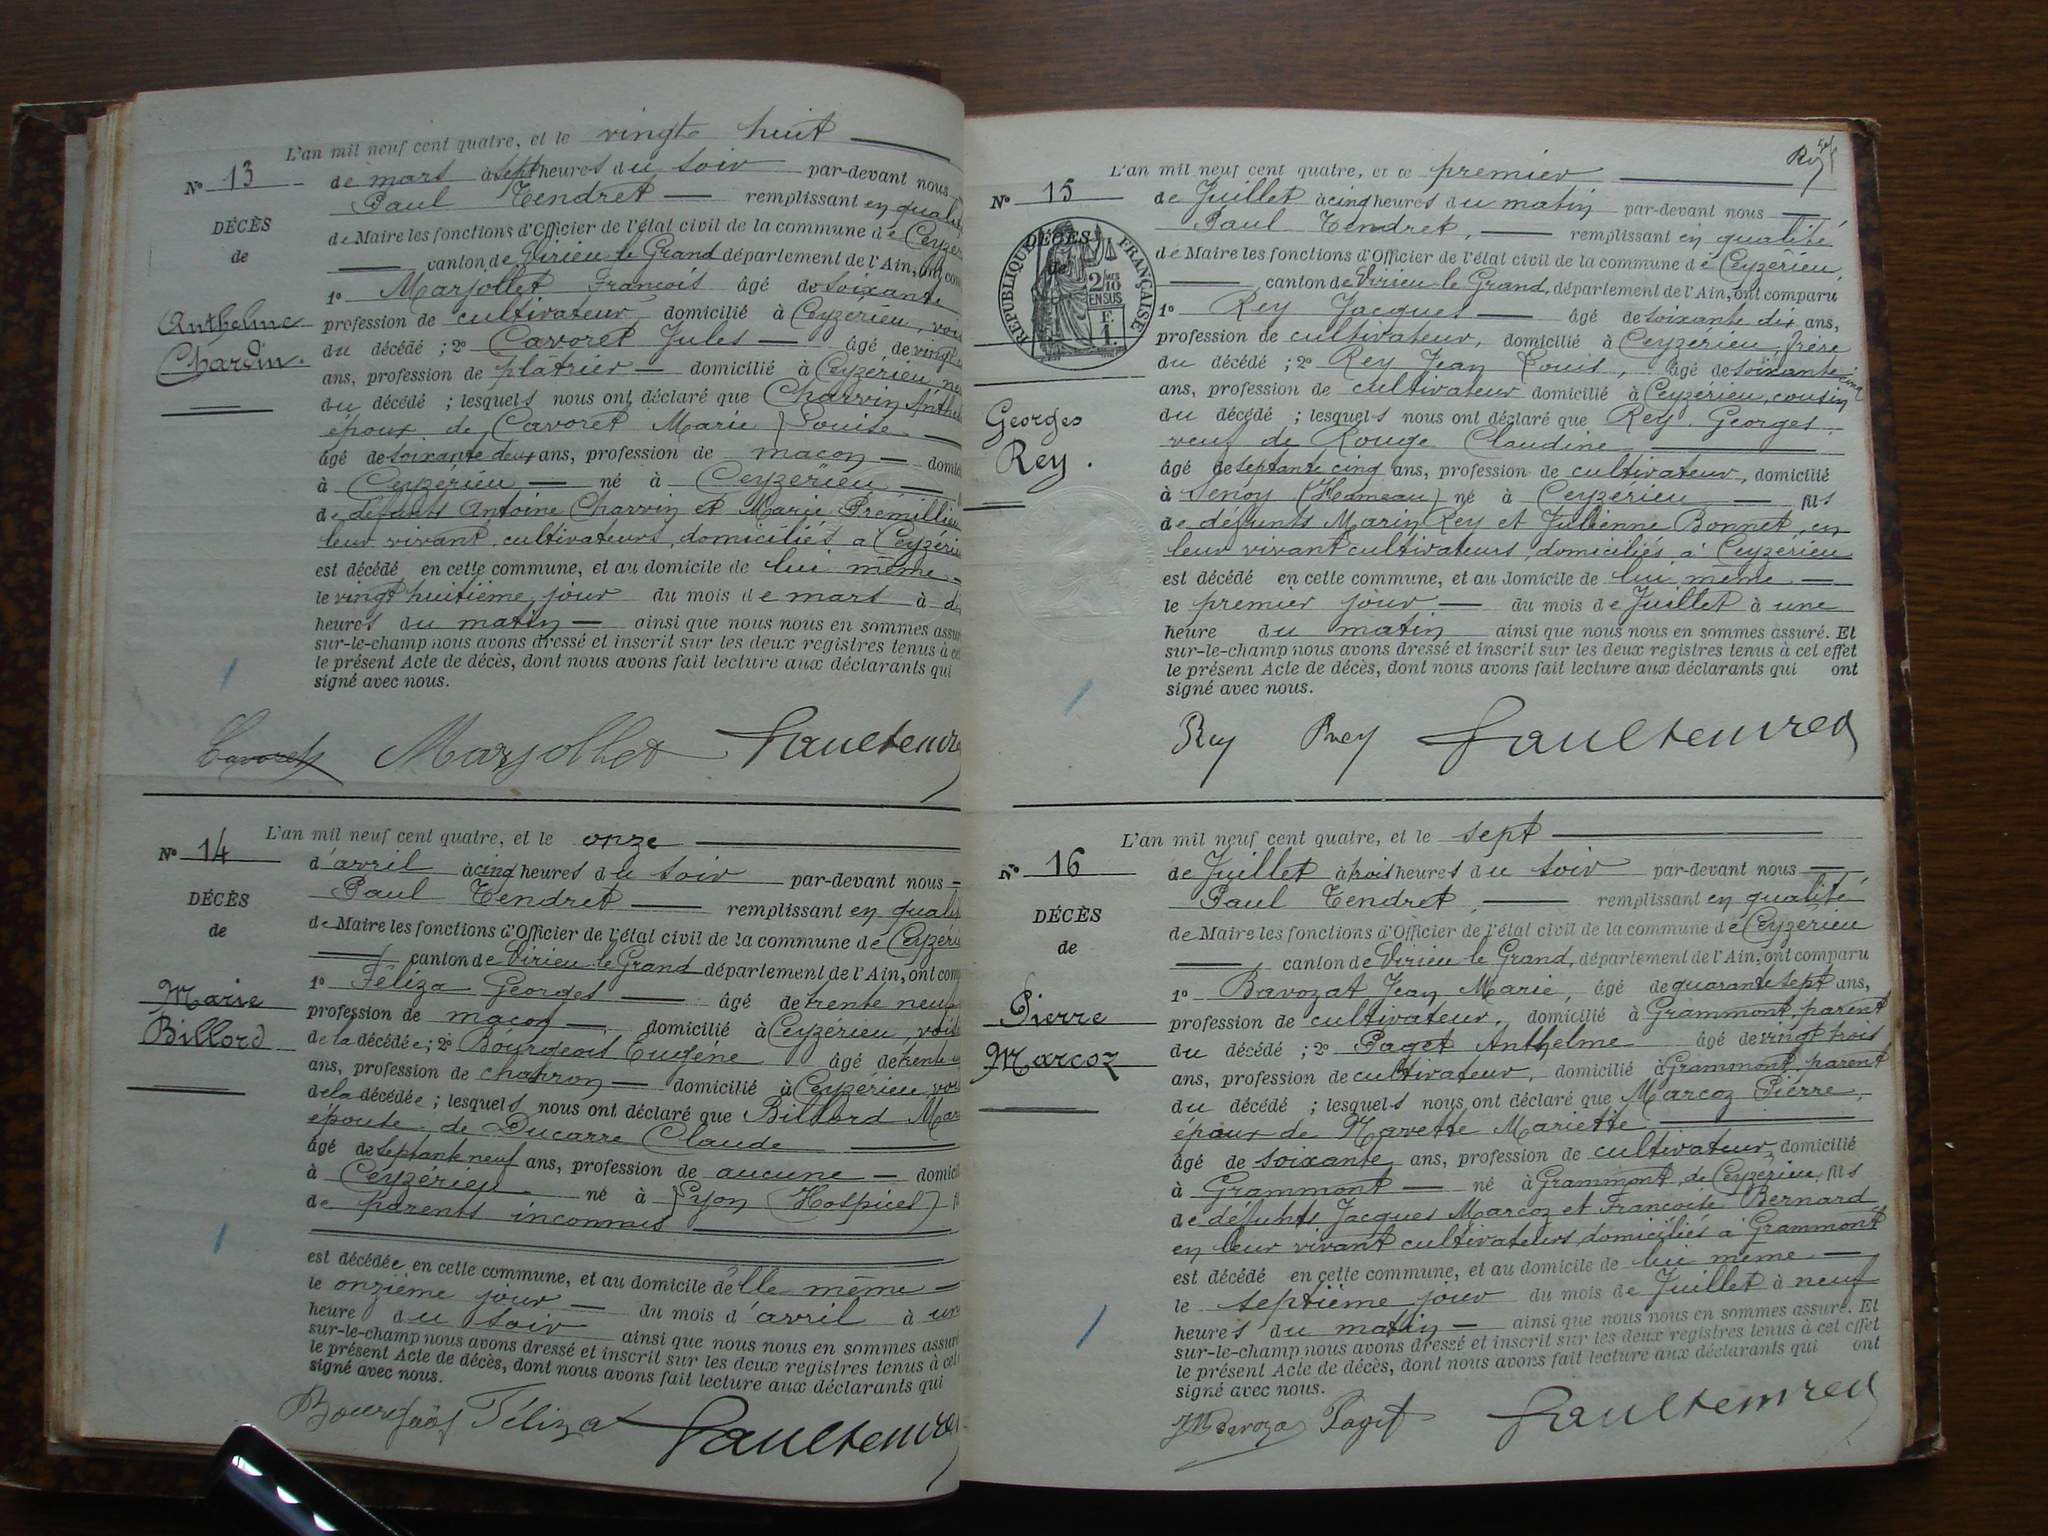 L'an mil neuf cent quatre, et le vingt huit
N° 13
de mars à sept heures du soir par-devant nous
Paul Tendret remplissant en qualité
DÉCÈS
de Maire les fonctions d'Officier de l'état civil de la commune de Ceyzér
de
canton de Virieu le Grand département de l'Ain, ont com
1° Marjollet François âgé de soixante
Anthelme
profession de cultivateur, domicilié à Ceyzérieu, vois
Charvin.
du décédé ; 2° Cavoret Jules âgé de vingt
ans, profession de plâtrier domicilié à Ceyzérieu, ne
du décédé ; lesquels nous ont déclaré que Charvin Anthel
époux de Cavoret Marie Louise
âgé de soixante deux ans, profession de maçon domici
à Ceyzérieu né à Ceyzérieu
de défunts Antoine Charvin et Marie Prémillieu
leur vivant cultivateurs, domiciliés à Ceyzérieu
est décédé en cette commune, et au domicile de lui même
le vingt huitième jour du mois de mars à d
heures du matin ainsi que nous nous en sommes assu
sur-le-champ nous avons dressé et inscrit sur les deux registres tenus à ce
le présent Acte de décès, dont nous avons fait lecture aux déclarants qui
signé avec nous.
Cavoret Marjollet Paultendre
L'an mil neuf cent quatre, et le onze
N° 14
d'avril à cinq heures du soir par-devant nous
Paul Tendret remplissant en qualit
DÉCÈS
de Maire les fonctions d'Officier de l'état civil de la commune de Ceyzérie
de
canton de Virieu le Grand département de l'Ain, ont comp
1° Féliza Georges âgé de trente neuf
Marie
profession de maçon domicilié à Ceyzérieu, vois
Billord
de la décédée ; 2° Bourgeois Eugène âgé de trente
ans, profession de charron domicilié à Ceyzérieu, voi
de la décédée ; lesquels nous ont déclaré que Billord Mar
épouse de Ducarre Claude
âgé de septante neuf ans, profession de aucune domici
à Ceyzérieu né à Lyon (Hospices)
de parents inconnus
est décédée en cette commune, et au domicile d'elle même
le onzième jour du mois d'avril à une
heure du soir ainsi que nous nous en sommes assuré
sur-le-champ nous avons dressé et inscrit sur les deux registres tenus à cet
le présent Acte de décès, dont nous avons fait lecture aux déclarants qui
signé avec nous.
Bourgeois Féliza Paultendre
Rey
L'an mil neuf cent quatre, et le premier
N° 15
de Juillet à cinq heures du matin par-devant nous
Paul Tendret, remplissant en qualité
DÉCÈS
de Maire les fonctions d'Officier de l'état civil de la commune de Ceyzérieu
de
RÉPUBLIQUE FRANÇAISE
2/10 EN SUS
F. 1.
canton de Virieu le Grand, département de l'Ain, ont comparu
1° Rey Jacques âgé de soixante dix ans,
profession de cultivateur, domicilié à Ceyzérieu, frère
du décédé ; 2° Rey Jean Louis, âgé de soixante cinq
ans, profession de cultivateur domicilié à Ceyzérieu, cousin
Georges
du décédé ; lesquels nous ont déclaré que Rey Georges
Rey.
veuf de Rouge Claudine
âgé de septante cinq ans, profession de cultivateur, domicilié
à Senoy (Hameau) né à Ceyzérieu fils
de défunts Marin Rey et Julienne Bonnet, en
leur vivant cultivateurs, domiciliés à Ceyzérieu
est décédé en cette commune, et au domicile de lui même
le premier jour du mois de Juillet à une
heure du matin ainsi que nous nous en sommes assuré. Et
sur-le-champ nous avons dressé et inscrit sur les deux registres tenus à cet effet
le présent Acte de décès, dont nous avons fait lecture aux déclarants qui ont
signé avec nous.
Rey Rey Paultendret
L'an mil neuf cent quatre, et le sept
N° 16
de Juillet à trois heures du soir par-devant nous
Paul Tendret, remplissant en qualité
DÉCÈS
de Maire les fonctions d'Officier de l'état civil de la commune de Ceyzérieu
de
canton de Virieu le Grand, département de l'Ain, ont comparu
1° Bavozat Jean Marie, âgé de quarante sept ans,
Pierre
profession de cultivateur, domicilié à Grammont, parent
Marcoz
du décédé ; 2° Paget Anthelme âgé de vingt trois
ans, profession de cultivateur, domicilié à Grammont, parent
du décédé ; lesquels nous ont déclaré que Marcoz Pierre,
époux de Navette Mariette
âgé de soixante ans, profession de cultivateur, domicilié
à Grammont né à Grammont, de Ceyzérieu, fils
de défunts Jacques Marcoz et Françoise Bernard
en leur vivant cultivateurs, domiciliés à Grammont
est décédé en cette commune, et au domicile de lui même
le septième jour du mois de Juillet à neuf
heures du matin ainsi que nous nous en sommes assuré. Et
sur-le-champ nous avons dressé et inscrit sur les deux registres tenus à cet effet
le présent Acte de décès, dont nous avons fait lecture aux déclarants qui ont
signé avec nous.
JM Bavoza Paget Paultendret